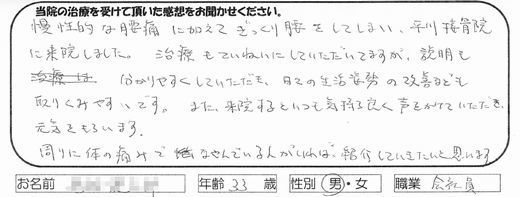 当院の治療を受けて頂いた感想をお聞かせください。
慢性的な腰痛に加えてぎっくり腰をしてしまい、平川接骨院
に来院しました。治療もていねいにしていただいてますが、説明も
分かりやすくしていただき、日々の生活姿勢の改善なども
取りくみやすいです。また、来院するといつも気持ち良く声をかけていただき、
元気をもらいます。
周りに体の痛みでなやんでいる人がいれば、紹介していきたいと思います
お名前 年齢 33 歳 性別 男・女 職業 会社員